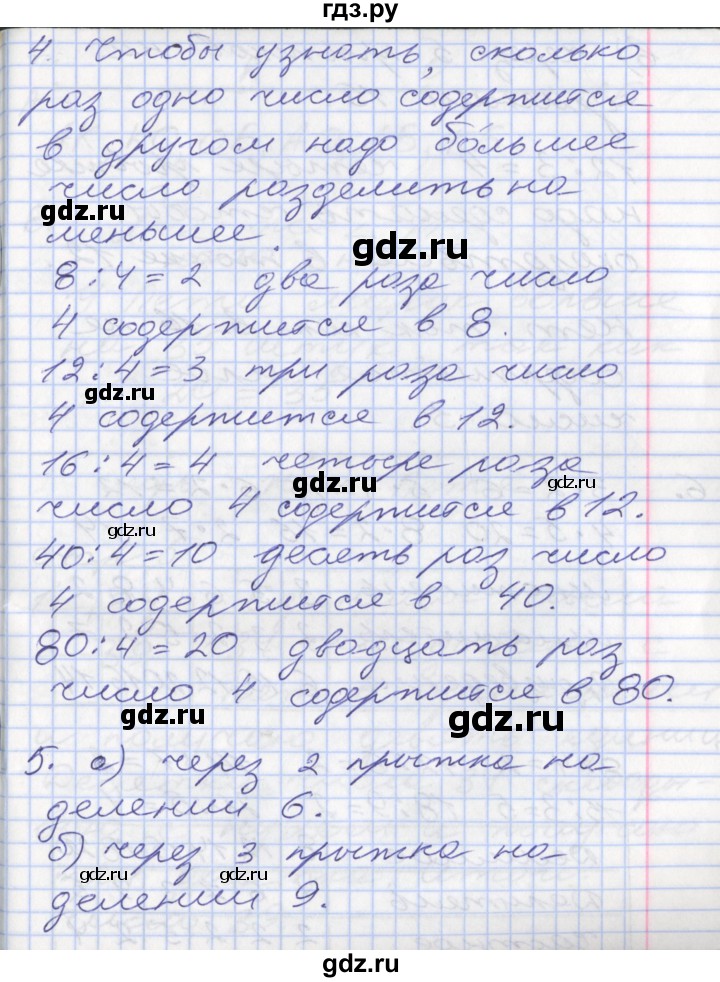 гдз.ру
4. Чтобы узнать, сколько
раз одно число содержится
в другом надо бо́льшее
число разделить на
меньшее.
gdz.ru
gdz.ru
8:4=2 два раза число
4 содержится в 8.
12:4=3 три раза число
gdz.ru
4 содержится в 12.
16:4=4 четыре раза
gdz.ru
число 4 содержится в 12.
gdz.ru
gdz.ru
40:4=10 десять раз число
4 содержится в 40.
80:4=20 двадцать раз
gdz.ru
число 4 содержится в 80.
gdz.ru
gdz.ru
5. а) через 2 прыжка на
делении 6.
б) через 3 прыжка на
gdz.ru
gdz.ru
делении 9.
gdz.ru